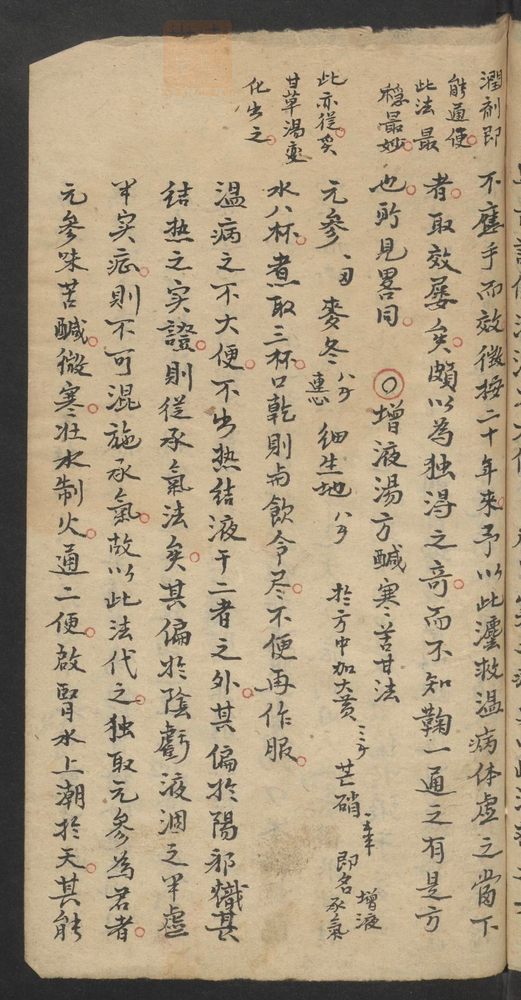 潤剤即
能通使
此法最
穩最妙
此亦從炙
甘草湯變
化出之
不應手而效徵按二十年來予以此瀍救温病体虚之當下
者取效屡矣頗以為独淂之竒而不知鞠一通之有是方
也所見畧同〇增液湯方醎寒苦甘法
元參一刃麥冬八分連心細生地八分扵方中加大黄三分芒硝一年半即名增液承氣
水八杯煮取三杯口乾則与飲令尽不便再作服
温病之不大便不出热結液干二者之外其偏扵陽邪熾甚
結热之实證則從承氣法矣其偏扵陰虧液涸之半虚
半实症則不可混施承氣故以此法代之独取元參為君者
元參味苦鹹微寒壮水制火通二便啟腎水上潮扵天其能